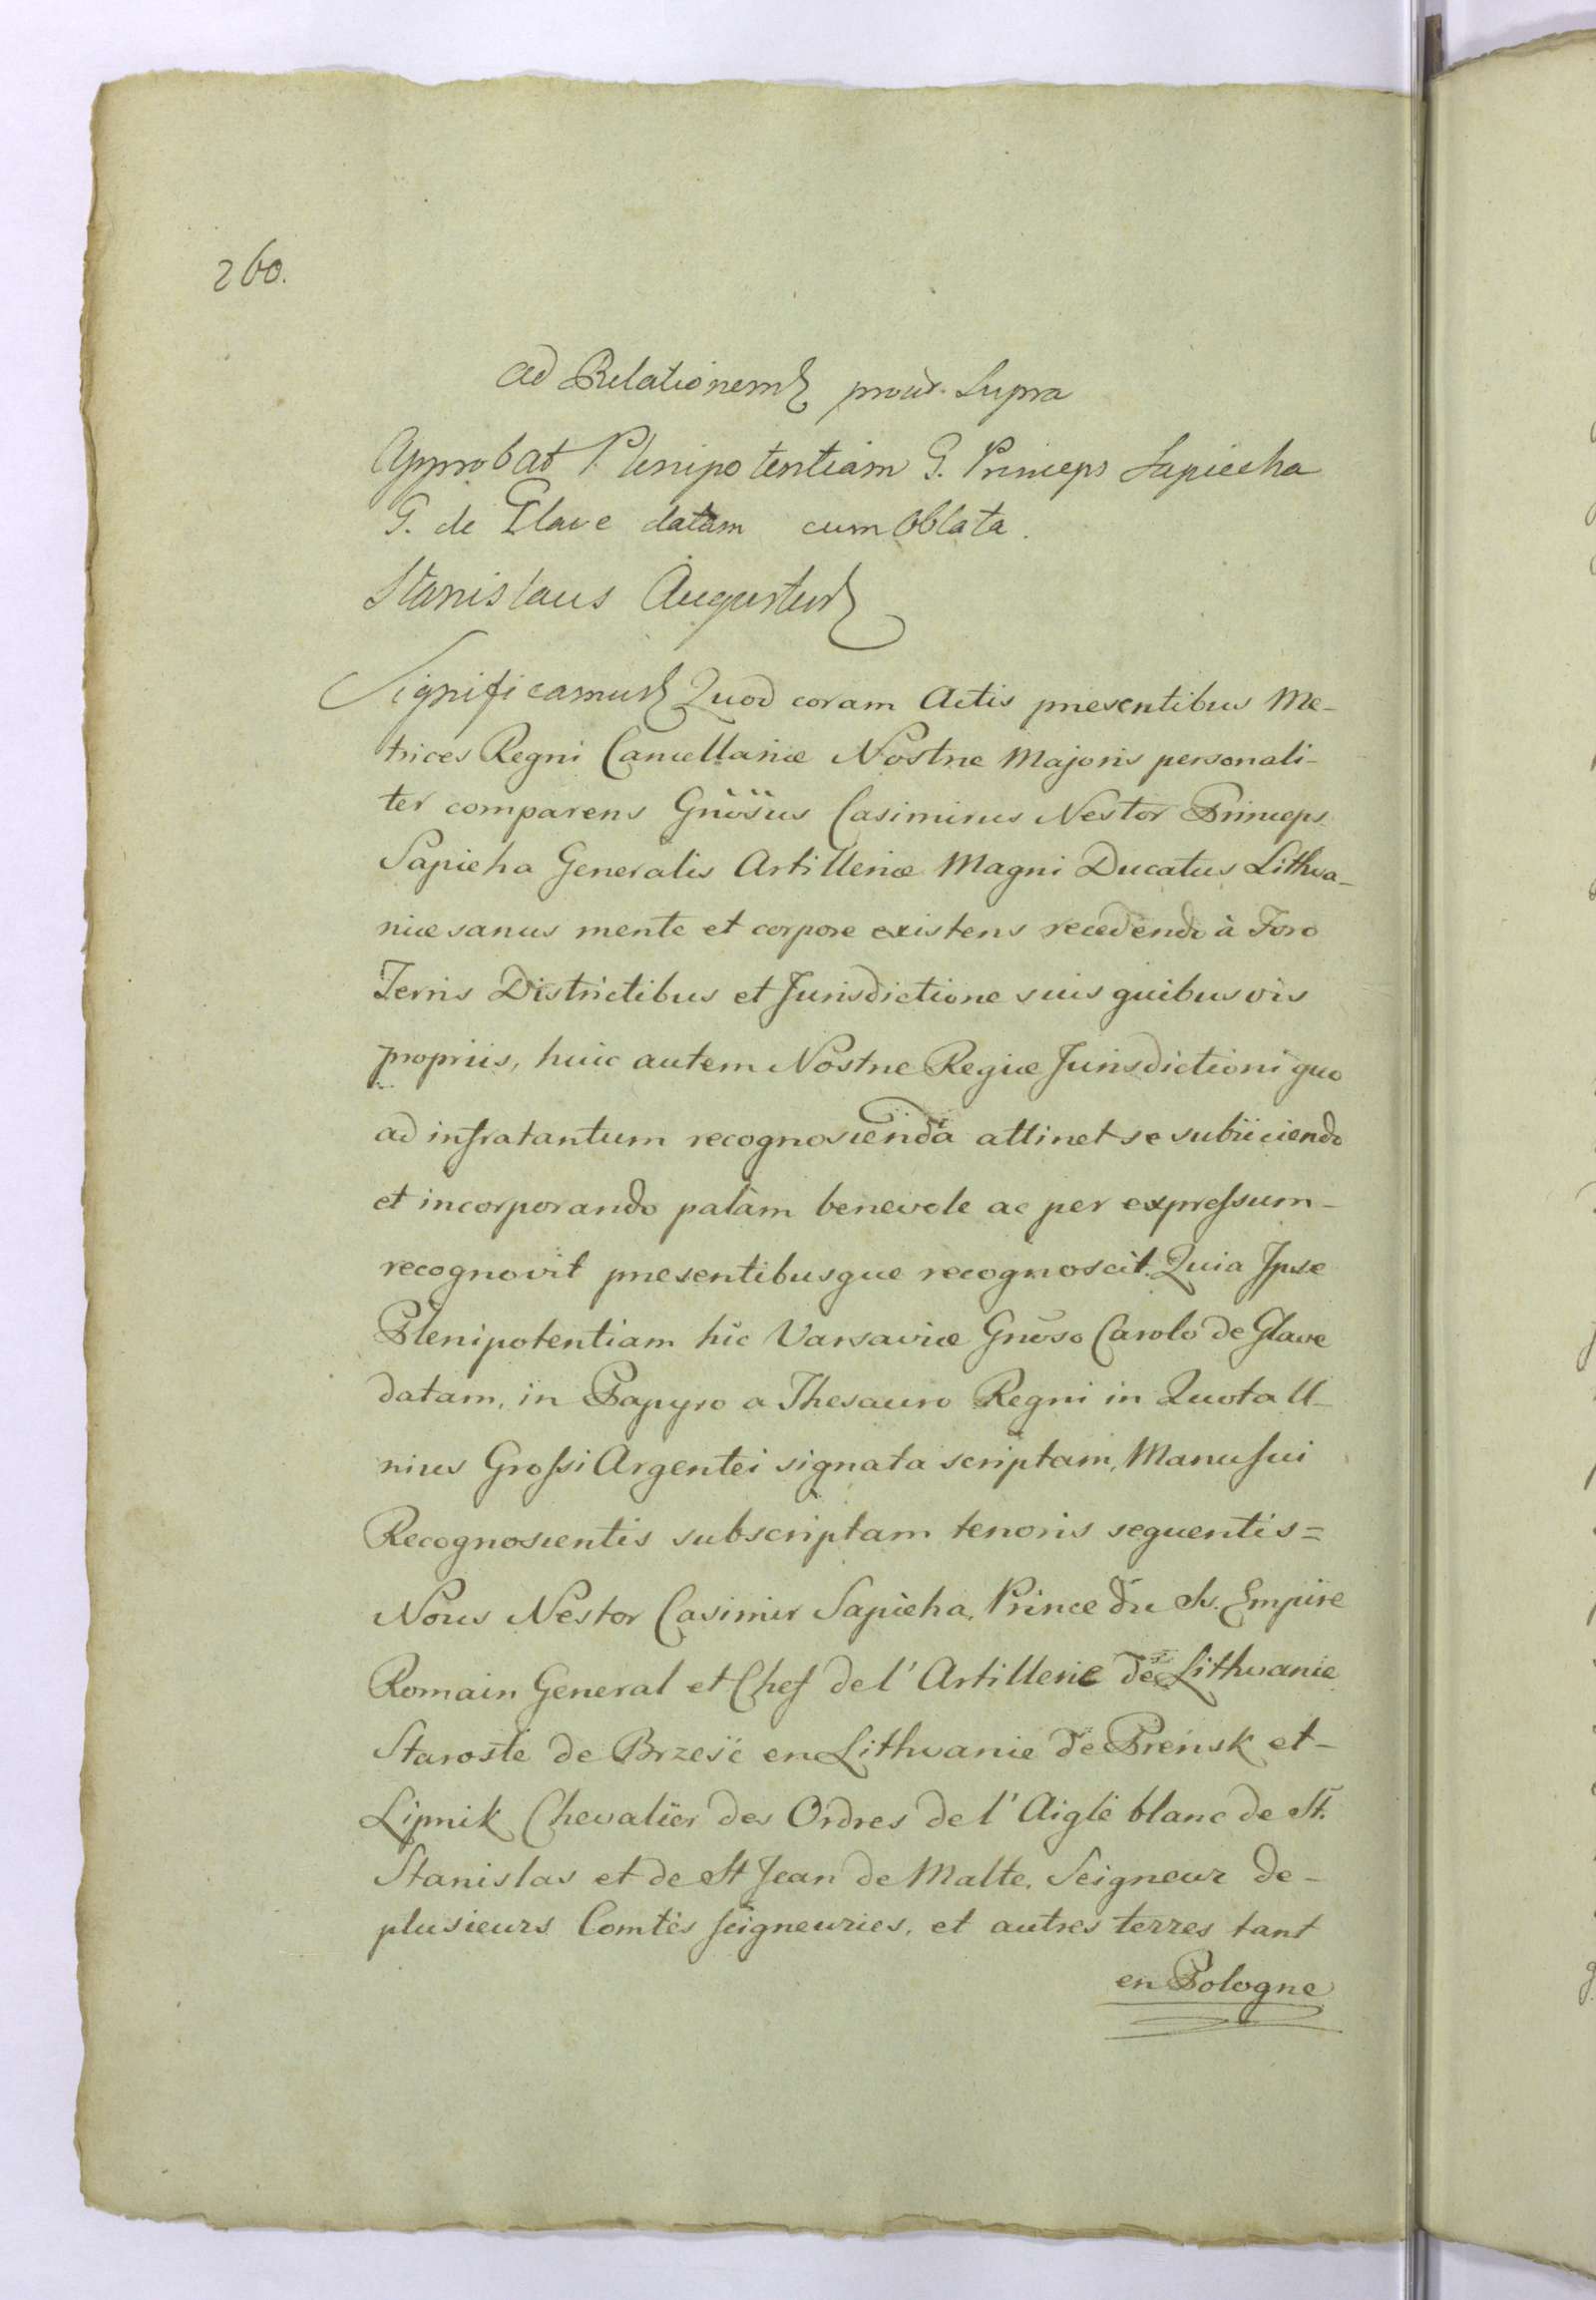 260.
ad Relationem prout Supra
Approbat Plenipotentiam G. Princeps Sapiecha
G. de Glave datam cum Oblata.
Stanislaus Augustus
Significamus Quod coram Actis præsentibus Me-
trices Regni Cancellariæ Nostræ Majoris personali-
ter comparens Gnosus Casimirus Nestor Princeps
Sapieha Generalis Artilleriæ Magni Ducatus Lithva-
niæ sanus mente et corpore existens recedendo à Foro
Terris Districtibus et Jurisdictione suis quibusvis
propriis, huic autem Nostræ Regiæ Jurisdictioni quo
ad infratantum recognoscenda attinet se subiiciendo
et incorporando palàm benevole ac per expressum-
recognovit præsentibusque recognoscit. Quia Jpse
Plenipotentiam hic Varsaviæ Gnoso Carolo de Glave
datam, in Papyro a Thesauro Regni in Quota U-
nius Grossi Argentei signata scriptam, Manu sui
Recognoscentis subscriptam tenoris sequentis=
Nous Nestor Casimir Sapieha, Prince du St. Empire
Romain General et Chef de l'Artillerie de Lithvanie
Staroste de Brześć en Lithvanie de Preńsk et-
Lipnik Chevalier des Ordres de l'Aigle blanc de St.
Stanislas et de St Jean de Malte, Seigneur de-
plusieurs Comtés seigneuries, et autres terres tant
en Pologne